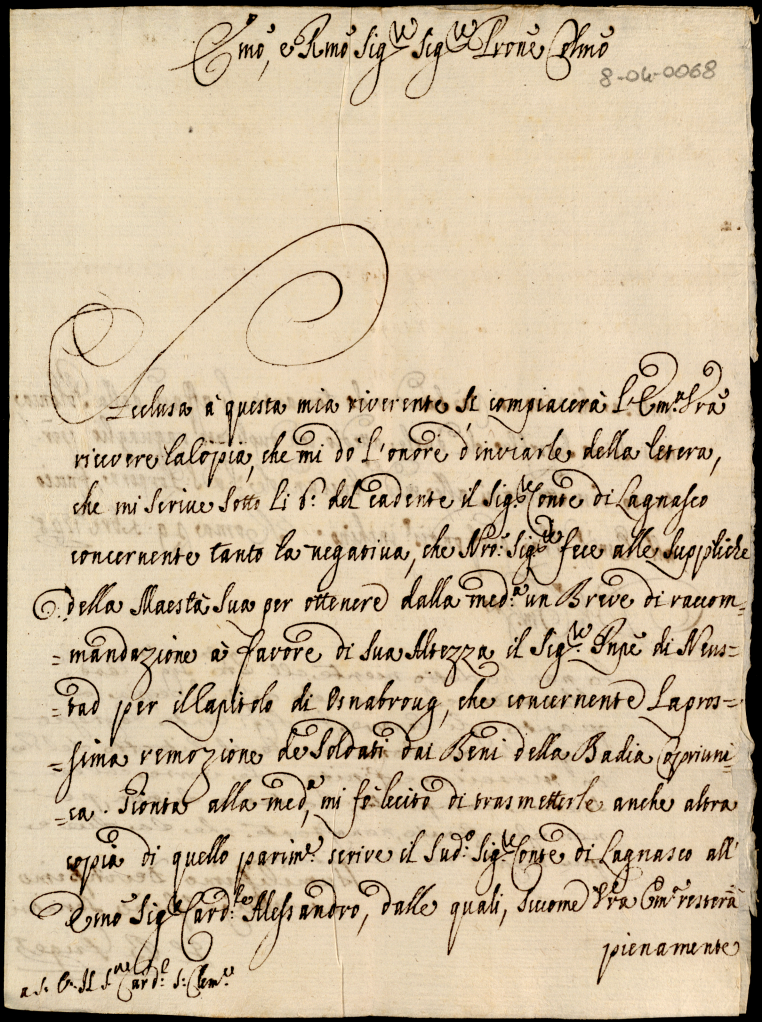 Emo, e Rmo Sig.re Sig.re Prone Colmo
8-04-0068
Acclusa à questa mia riverente si compiacerà l'Em.a Vra
ricevere la Copia, che mi dò l'onore d'inviarle della letera,
che mi scrive sotto li 6. del cadente il Sig.r Conte di Lagnasco
concernente tanto la negativa, che Nro: Sig.re fece alle suppliche
della Maestà Sua per ottenere dalla med.a un Breve di raccom=
=mandazione à favore di Sua Altezza il Sig.re Pnpe di Neus=
=tad per il Capitolo di Osnabroug, che concernente la pros=
=sima remozione de Soldati dai Beni della Badia Cipriani=
=ca. Gionta alla med.a, mi fò lecito di trasmetterle anche altra
copia di quello parim.te scrive il Sud.o Sig.r Conte di Lagnasco all'
Emo Sig.r Card.le Alessandro, dalle quali, siccome Vra Em.a resterà
pienamente
a S. E. Il S.re Card.l S: Clem.te